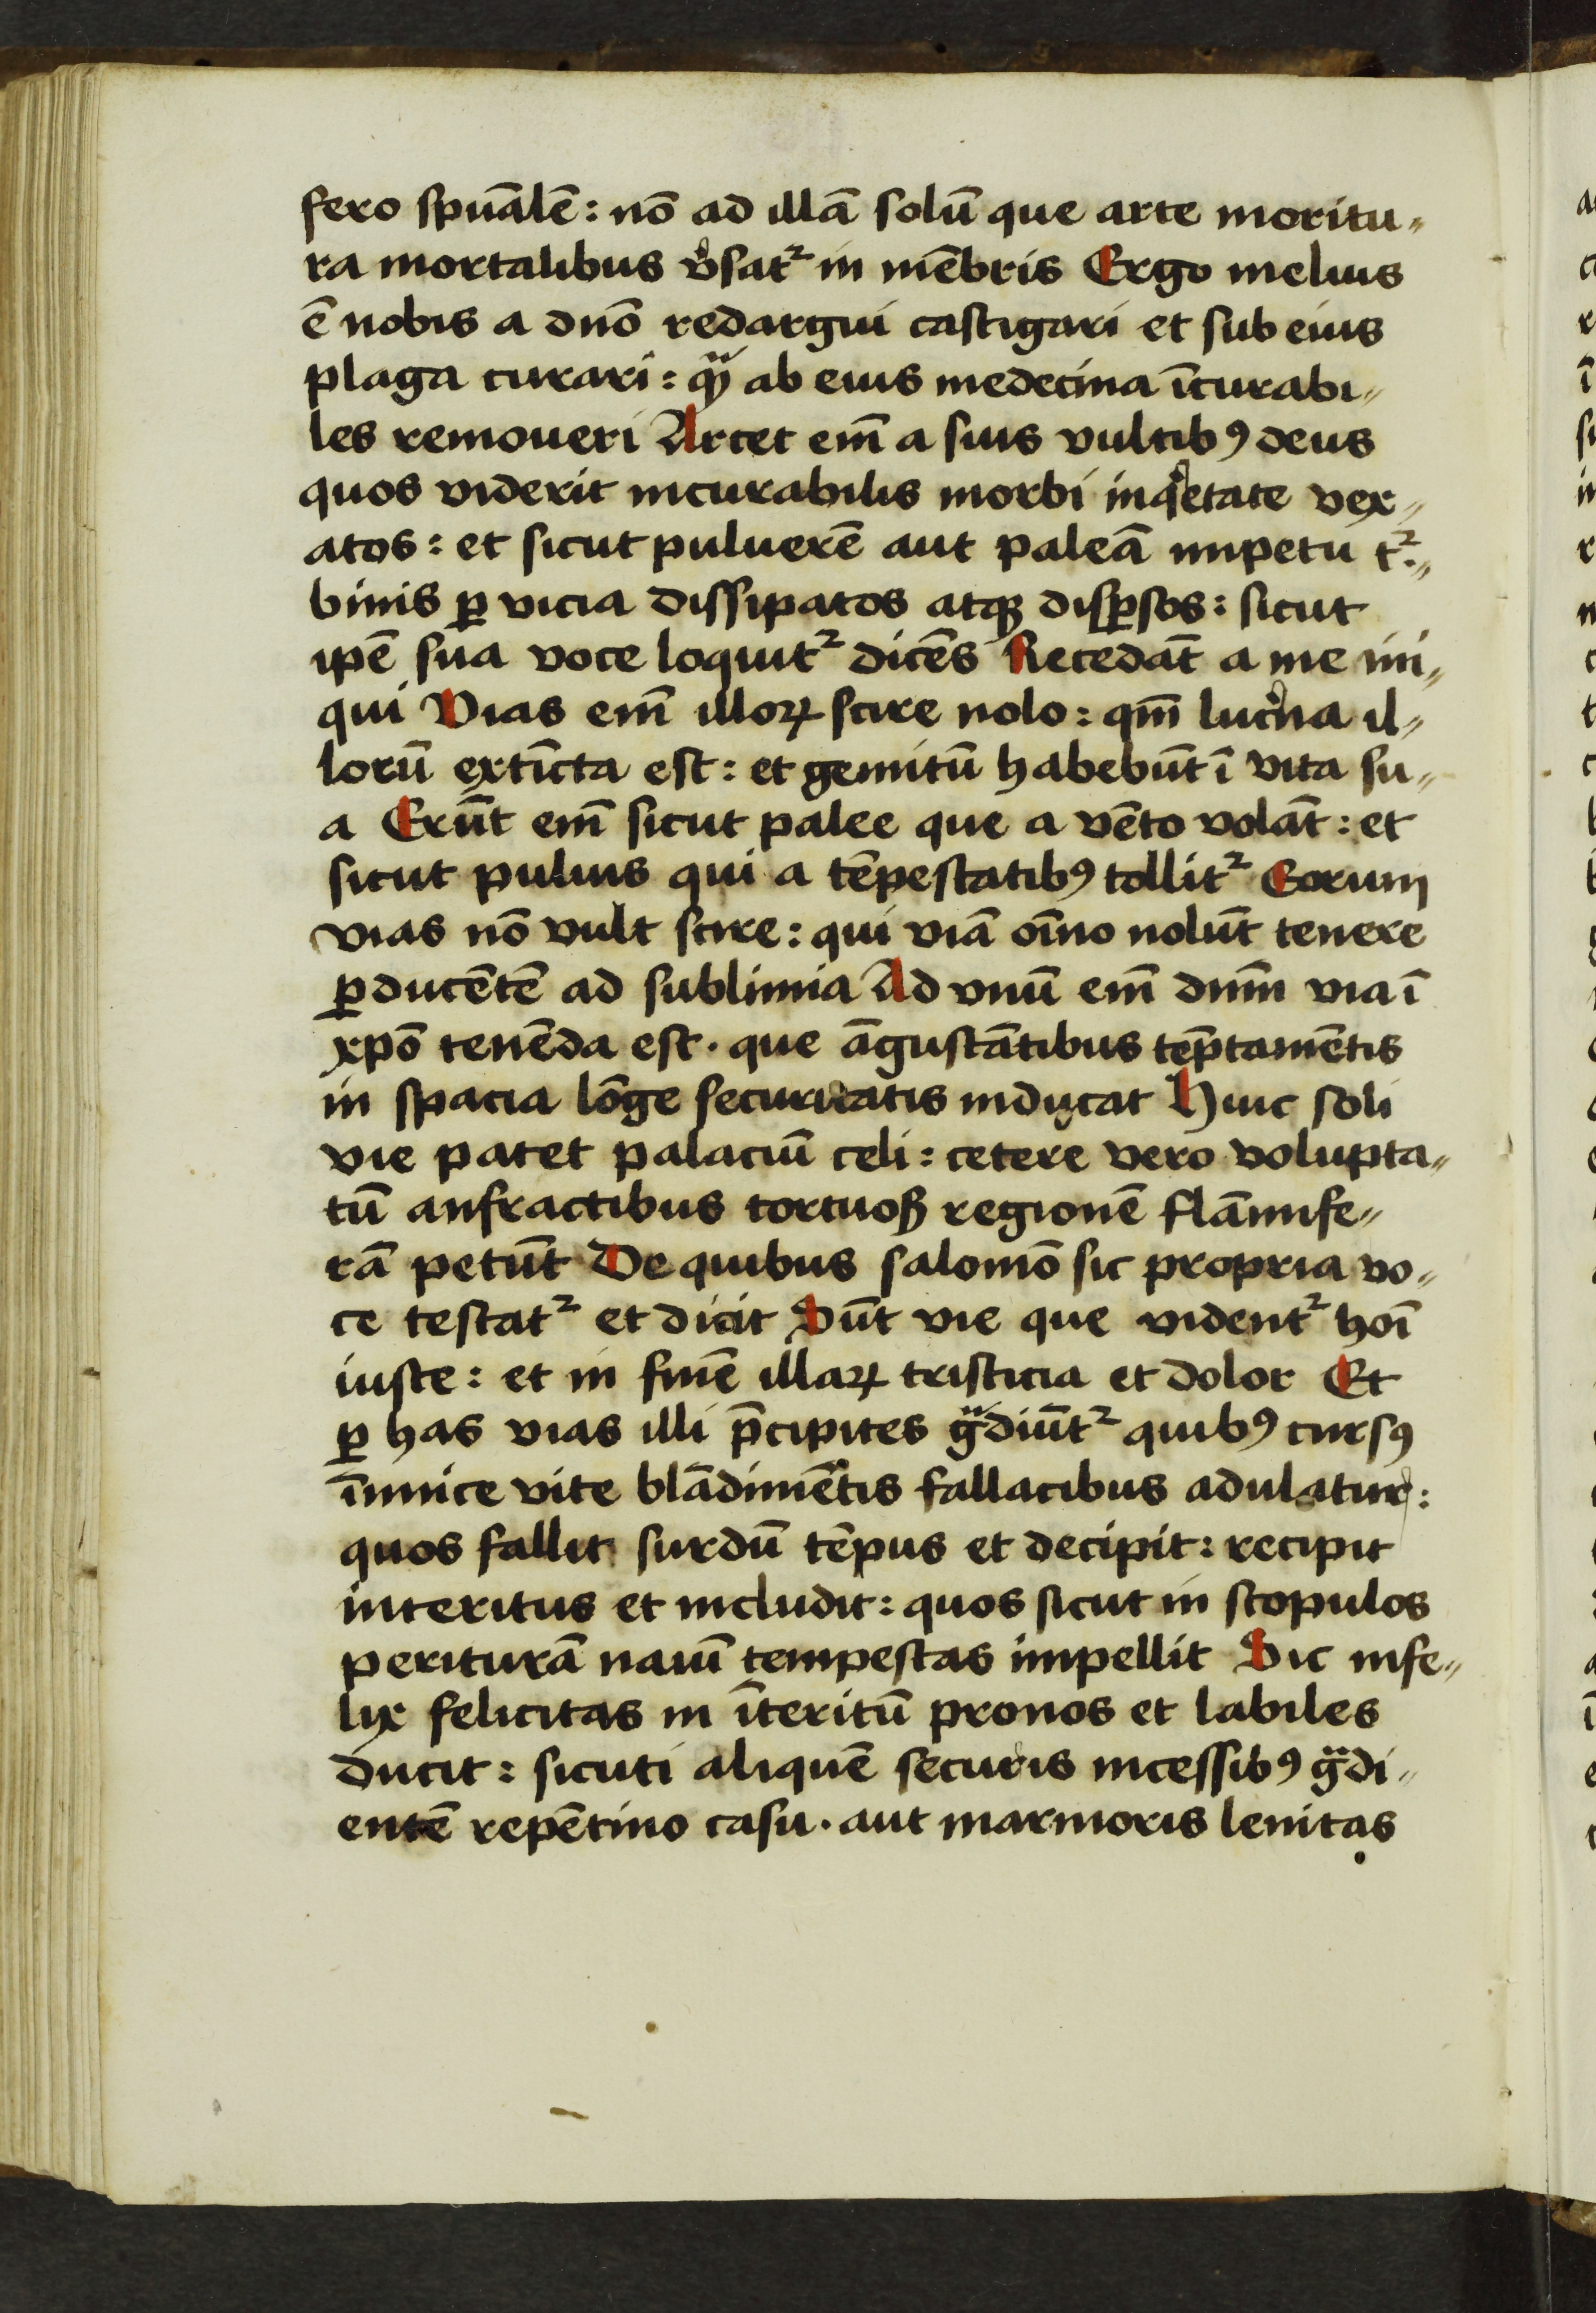 fero spūalē : nō ad illā solū que arte moritu„
ra mortalibus v̓sat² in mēbris Ergo melius
ē nobis a dnō redargui castigari et sub eius
plaga curari : qᷓȝ ab eius medecina īcurabi„
les remoueri Arcet em̄ a suis vultibꝰ deus
quos viderit incurabilis morbi inqͥetate vex„
atos : et sicut puluerē aut paleā impetu t²„
binis ꝑ vicia dissipatos atqꝫ disꝑsos : sicut
ipē sua voce loquit² dicēs Recedāt a me ini„
qui Vias em̄ illoꝝ scire nolo : qm̄ luc̓na il„
lorū extīcta est : et gemitū habebūt ī vita su„
a Erūt em̄ sicut palee que a vēto volāt : et
sicut puluis qui a tēpestatibꝰ tollit² Eorum
vias nō vult scire : qui viā oīno nolūt tenere
ꝑducētē ad sublimia Ad vnū em̄ dnm̄ via ī
xpō tenēda est . que āgustātibus tēptamētis
in spacia lōge securitatis inducat Huic soli
vie patet palaciū celi : cetere vero volupta„
tū anfractibus tortuoß regionē flāmife„
rā petūt De quibus salomō sic propria vo„
ce testat² et dicit Sūt vie que vident² hoī
iuste : et in finē illaꝝ tristicia et dolor Et
ꝑ has vias illi p̄cipites gᷓdiūt² quibꝰ cursꝰ
īimice vite blādimētis fallacibus adulatur :
quos fallit surdū tēpus et decipit : recipit
interitus et includit : quos sicut in scopulos
periturā nauī tempestas impellit Sic infe„
lix felicitas in īteritū pronos et labiles
ducit : sicuti aliquē securis incessibꝰ gᷓdi„
entē repētino casu . aut marmoris lenitas